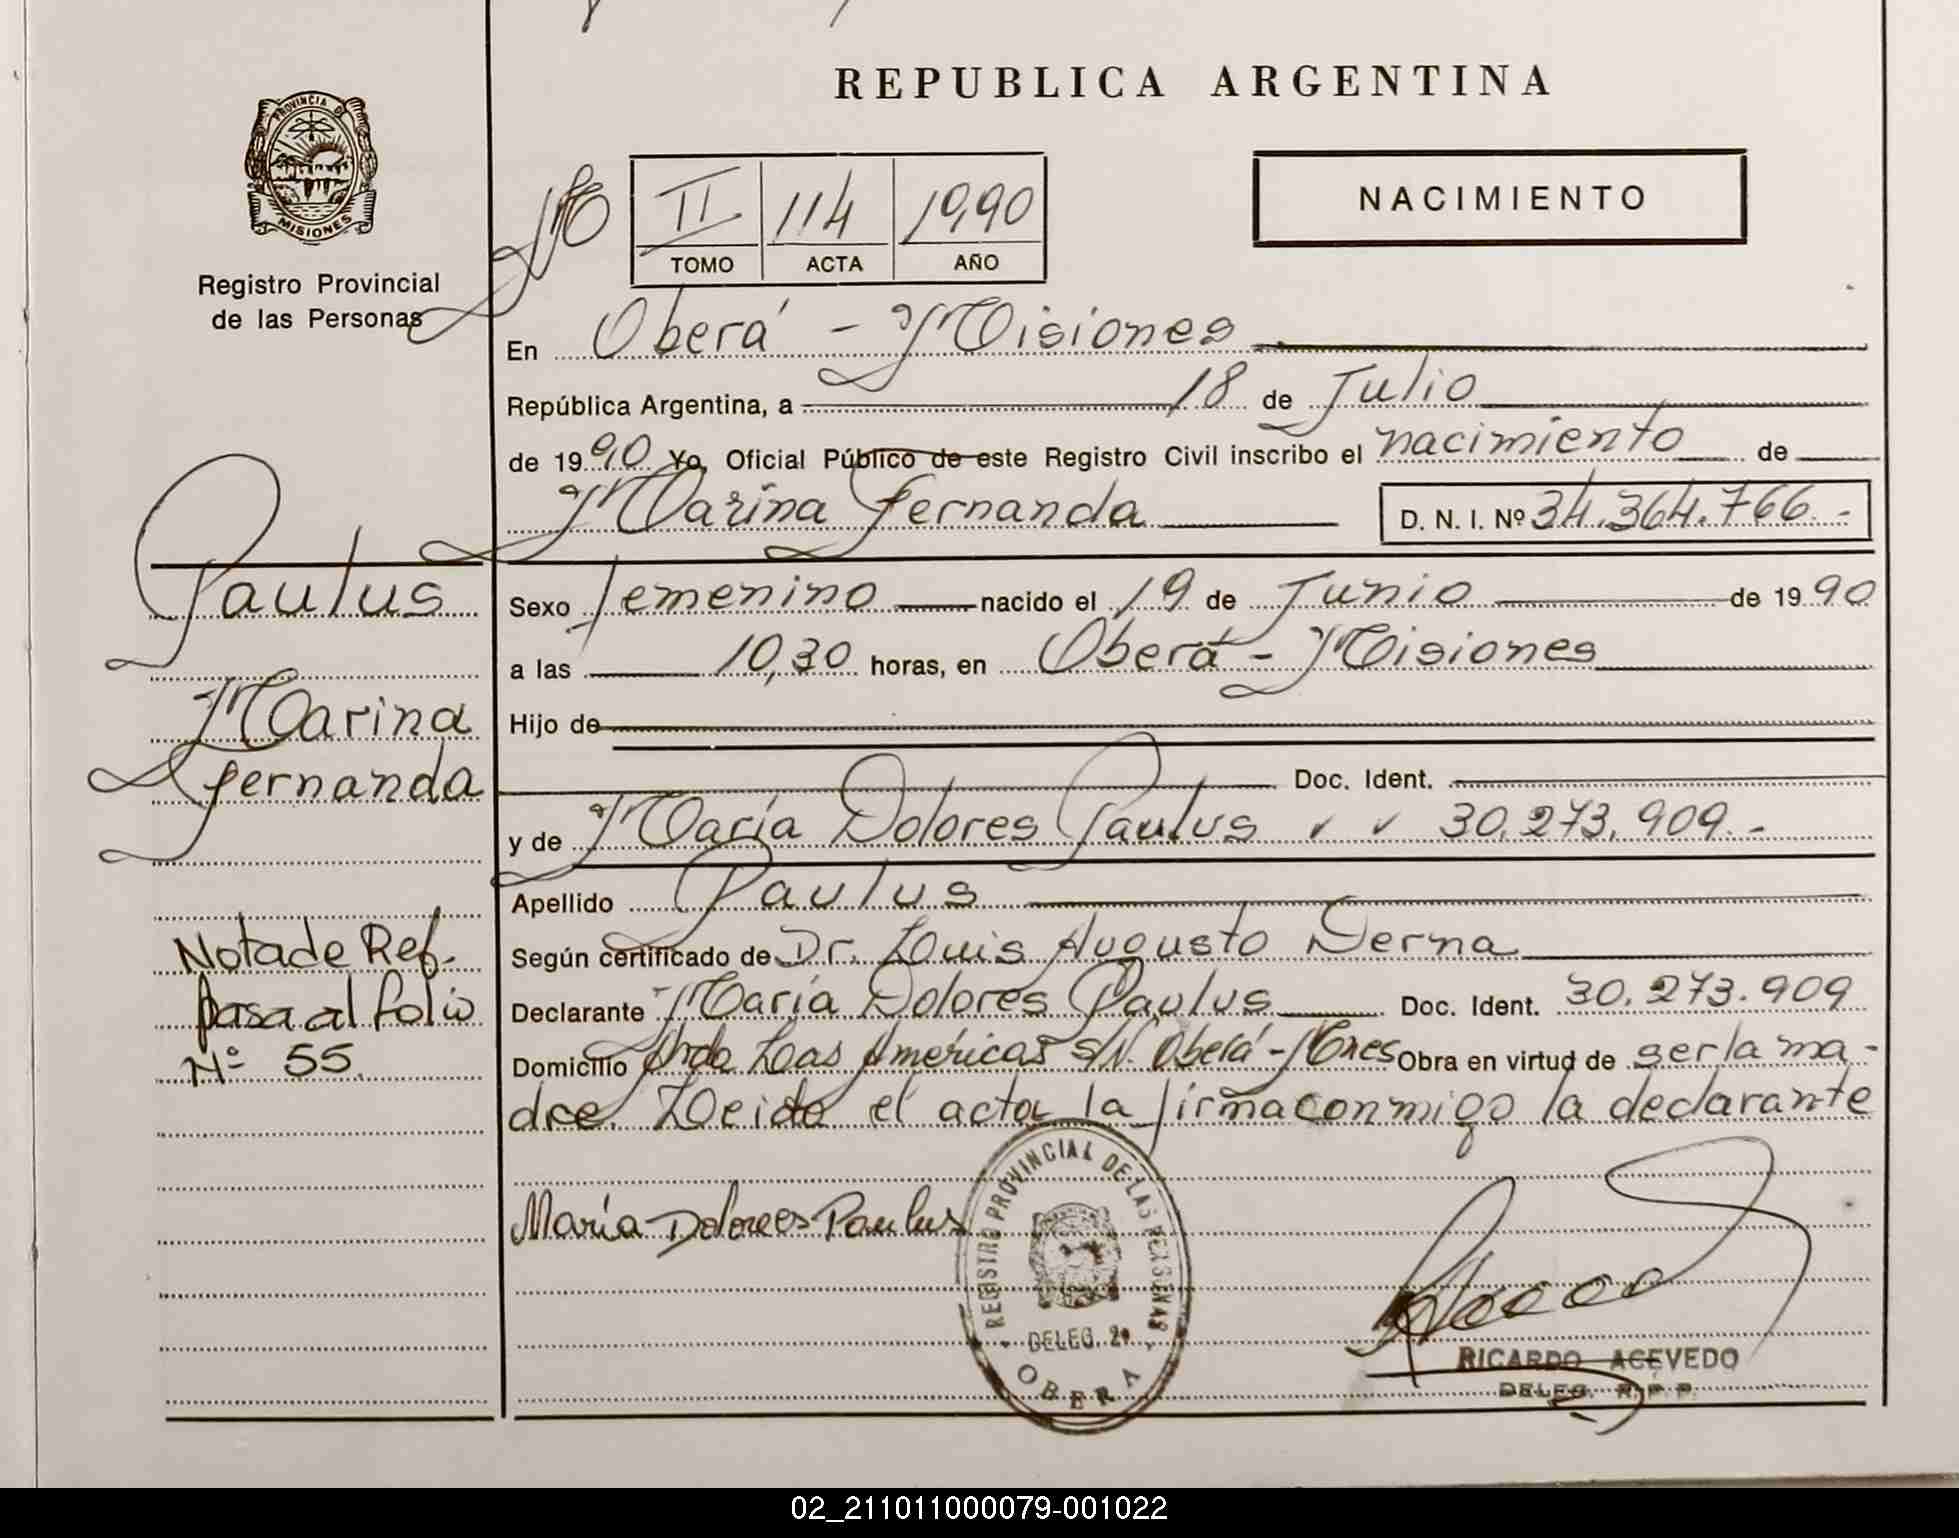 REPUBLICA ARGENTINA
PROVINCIA DE
MISIONES
Registro Provincial
de las Personas
II 114 1990
TOMO ACTA AÑO
NACIMIENTO
En Oberá - Misiones
República Argentina, a 18 de Julio
de 1990 Yo, Oficial Público de este Registro Civil inscribo el nacimiento de
Marina Fernanda D. N. I. Nº 34.364.766.-
Paulus
Marina
Fernanda
Nota de Ref.
pasa al folio
Nº 55.
Sexo femenino nacido el 19 de Junio de 1990
a las 10,30 horas, en Oberá - Misiones
Hijo de
Doc. Ident.
y de María Dolores Paulus 30.273.909.-
Apellido Paulus
Según certificado de Dr. Luis Augusto Derna
Declarante María Dolores Paulus Doc. Ident. 30.273.909
Domicilio Avda Las Américas S/N. Oberá - Mnes Obra en virtud de ser la ma-
dre. Leida el acta la firma conmigo la declarante
María Dolores Paulus
REGISTRO PROVINCIAL DE LAS PERSONAS
DELEG. 2ª
OBERA
RICARDO ACEVEDO
DELEG. R. P. P.
02_211011000079-001022